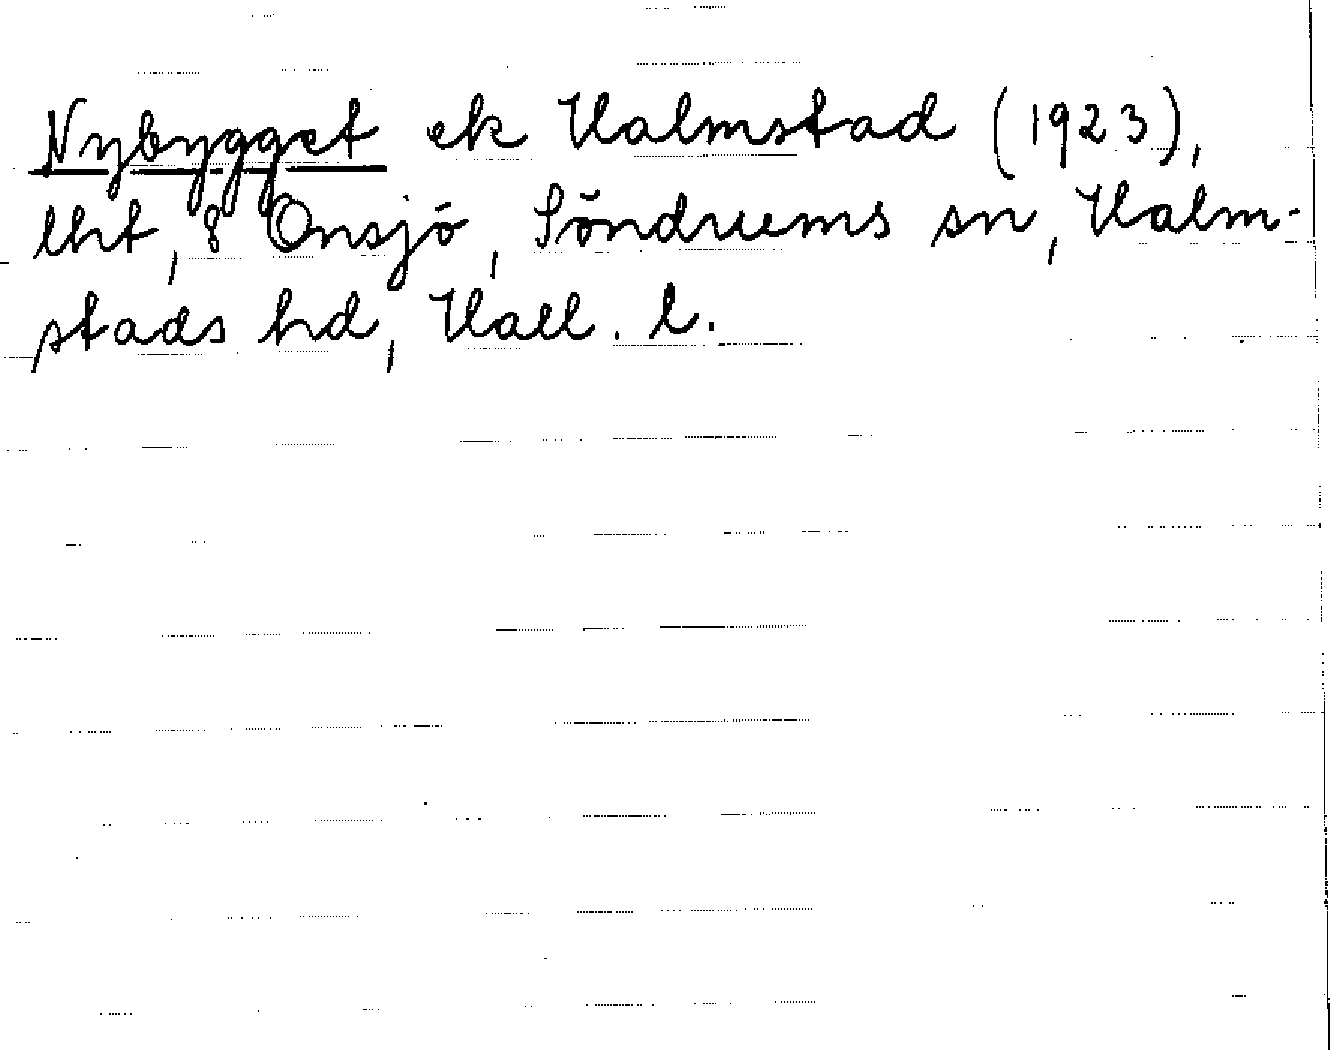 Nybygget ek Halmstad (1923),
lht, 8 Onsjö, Söndrums sn, Halm-
stads hd, Hall. l.